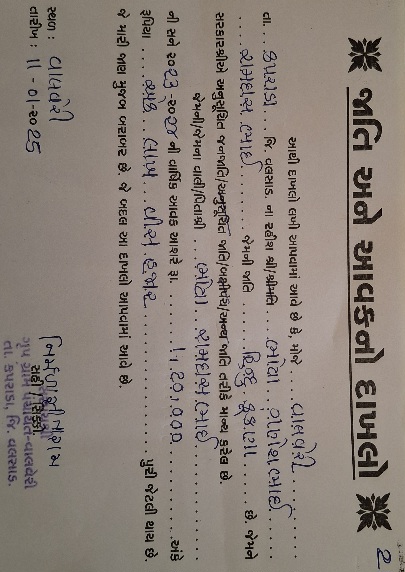 2
જાતિ અને આવકનો દાખલો
આથી દાખલો લખી આપવામાં આવે છે કે, મોજે .... વાલવેરી ....
તા. .. કપરાડા ... જિ. વલસાડ. ના રહીશ શ્રી/શ્રીમતિ .. ભોયા ગણેશભાઈ ....
.... રામદાસભાઈ ..... જેમની જાતિ .... હિન્દુ કુકણા .... છે. જેમને
સરકારશ્રીએ અનુસૂચિત જનજાતિ/અનુસૂચિત જાતિ/બક્ષીપંચ/અન્ય જાતિ તરીકે માન્ય કરેલ છે.
જેઓની/જેમના વાલી/પિતાશ્રી .... ભોયા રામદાસભાઈ ..........
ની સને ૨૦ 23-2024 ની વાર્ષિક આવક આશરે રૂા. ..... 1,20,000 ..... અંકે
રૂપિયા .... એક લાખ વીસ હજાર .......... પુરી જેટલી થાય છે.
જે મારી જાણ મુજબ બરાબર છે. જે બદલ આ દાખલો આપવામાં આવે છે.
સ્થળ : વાલવેરી
તારીખ : 11-01-2025
સહી/સિક્કો
ગ્રુપ ગ્રામ પંચાયત-વાલવેરી
તા. કપરાડા, જિ. વલસાડ.